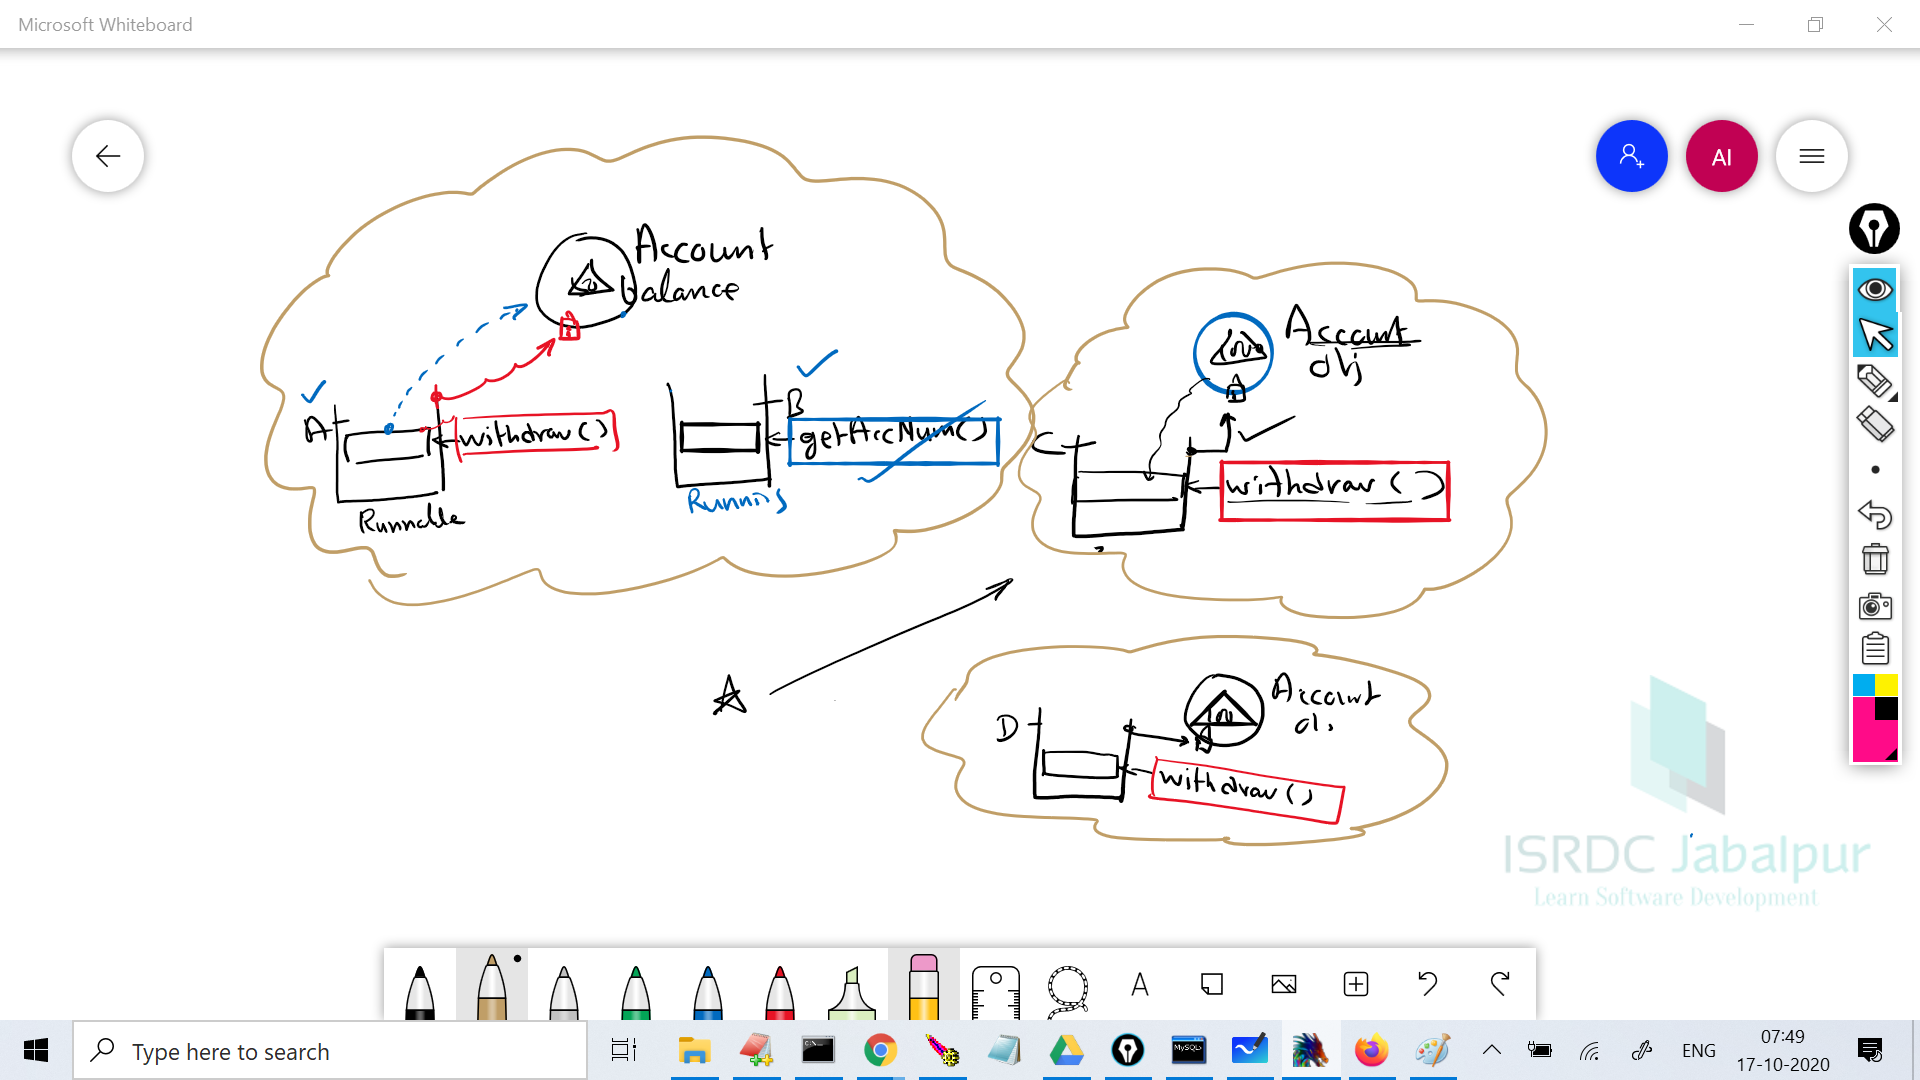 Microsoft Whiteboard
AI
Account
balance
A
withdraw()
Runnable
B
getAccNum()
Running
Account
obj
C
withdraw()
A
D
Account
withdraw()
ISRDC Jabalpur
Learn Software Development
A
Type here to search
C:\
MySQL
ENG
07:49
17-10-2020